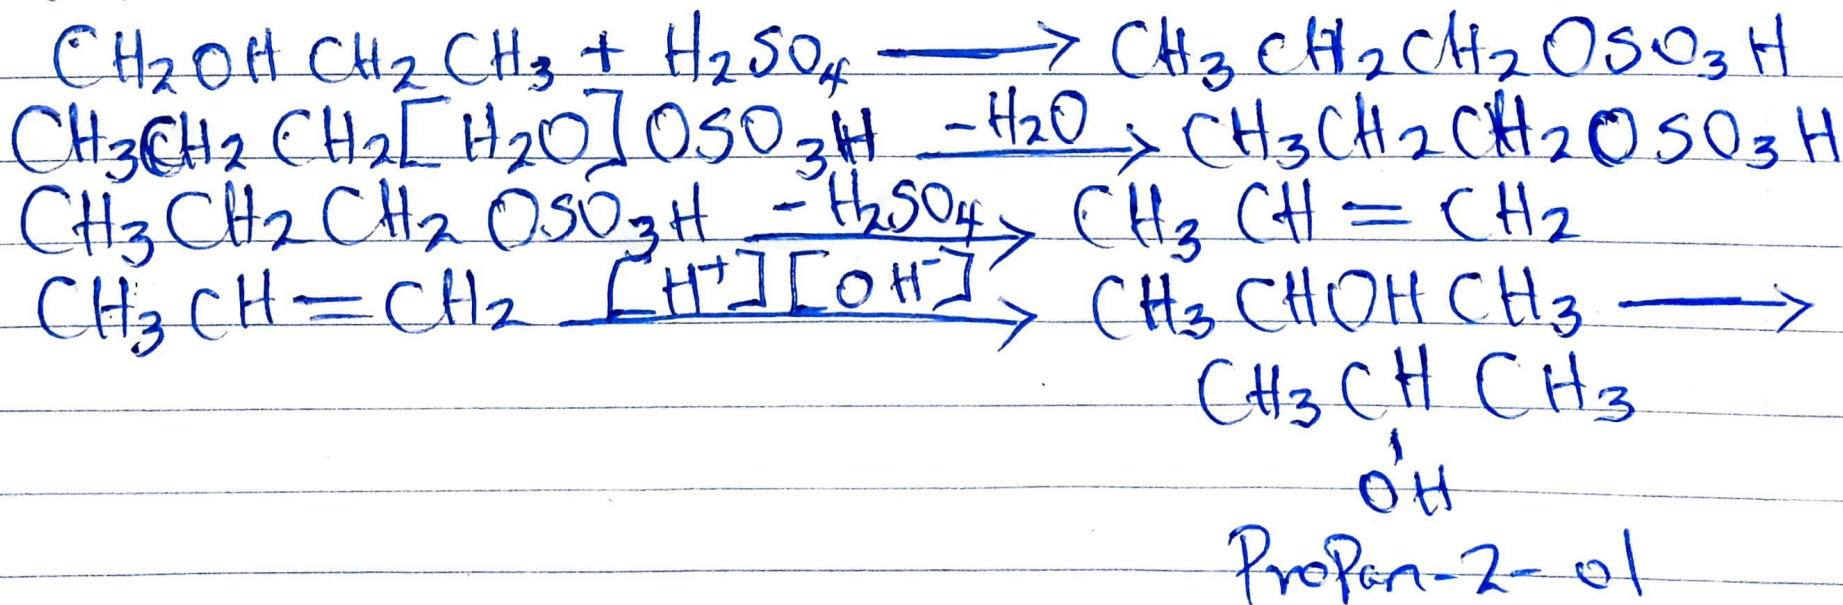 CH₂OH CH₂ CH₃ + H₂SO₄ ⟶ CH₃ CH₂ CH₂ OSO₃H
CH₃CH₂ CH₂[H₂O]OSO₃H -H₂O⟶ CH₃CH₂CH₂OSO₃H
CH₃CH₂CH₂ OSO₃H -H₂SO₄⟶ CH₃ CH = CH₂
CH₃ CH = CH₂ [H⁺][OH⁻]⟶ CH₃ CHOH CH₃ ⟶
CH₃ CH CH₃
OH
Propan-2-ol